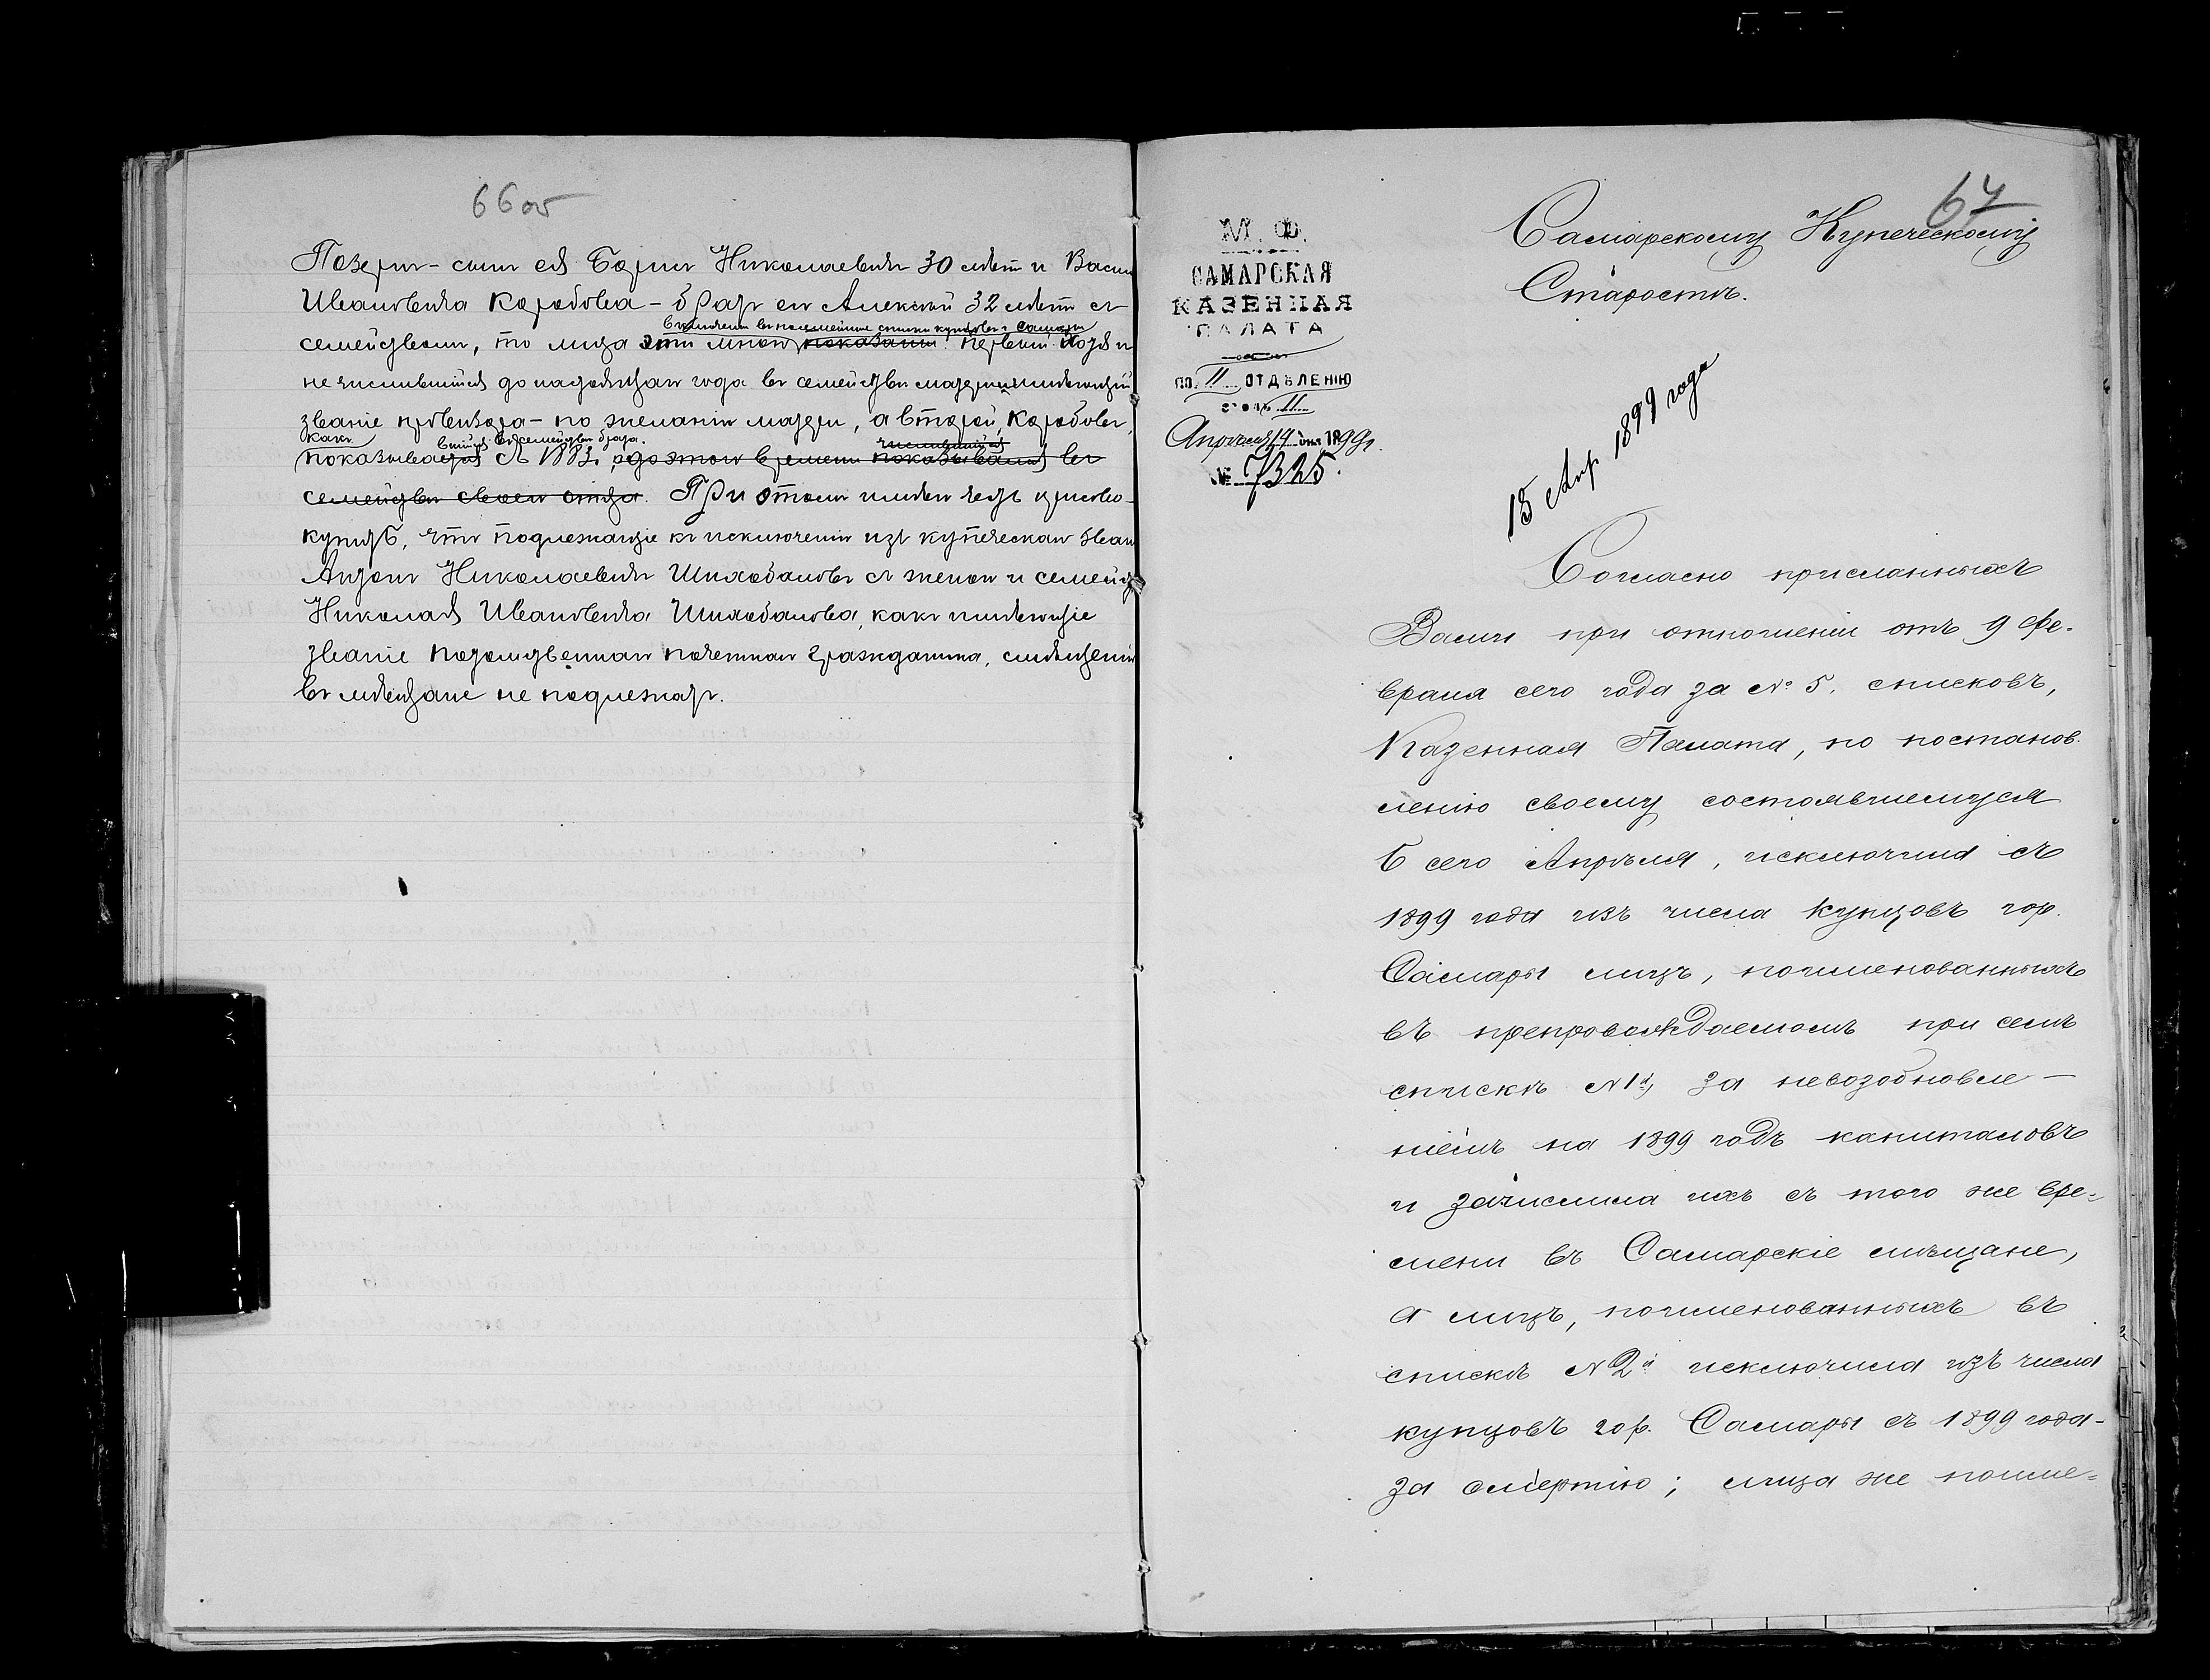 66 об
Позерн - сынъ ея Борисъ Николаевичъ 30 лѣтъ и Васи
Ивановича Коробова - братъ его Алексѣй 32 лѣтъ съ
включены въ посемейные списки купцовъ г. Самары
семействомъ, то лица эти мною показаны: первый хотя и
не числившійся до настоящаго года въ семействѣ матери имѣющій
званіе провизора - по желанію матери, а второй, Коробовъ,
какъ вшійся въ семействѣ брата. числившійся
показывается съ 1883 г. а до этого времени показывался въ
семействѣ своего отца. При этомъ имѣю честь присово-
купить, что подлежащіе къ исключенію изъ купеческаго зван
Антонъ Николаевичъ Шихобаловъ съ женою и семейс
Николая Ивановича Шихобалова, какъ имѣющіе
званіе потомственнаго почетнаго гражданина, смѣщенію
въ мѣщане не подлежатъ.
67
М. Ф.
САМАРСКАЯ
КАЗЕННАЯ
ПАЛАТА
ПО II ОТДѢЛЕНІЮ
столъ II
Апрѣля 14 дня 1899 г.
№ 7325.
Самарскому Купеческому
Старостѣ.
15 Апр 1899 года
Согласно присланныхъ
Вами при отношеніи отъ 9 фе-
враля сего года за № 5, списковъ,
Казенная Палата, по постанов-
ленію своему состоявшемуся
6 сего Апрѣля, исключила съ
1899 года изъ числа купцовъ гор.
Самары лицъ, поименованныхъ
въ препровождаемомъ при семъ
спискѣ № 1й, за невозобновле-
ніемъ на 1899 годъ капиталовъ
и зачислила ихъ съ того же вре-
мени въ Самарскіе мѣщане,
а лицъ, поименованныхъ въ
спискѣ № 2й исключила изъ числа
купцовъ гор. Самары съ 1899 года -
за смертію; лица же поиме-